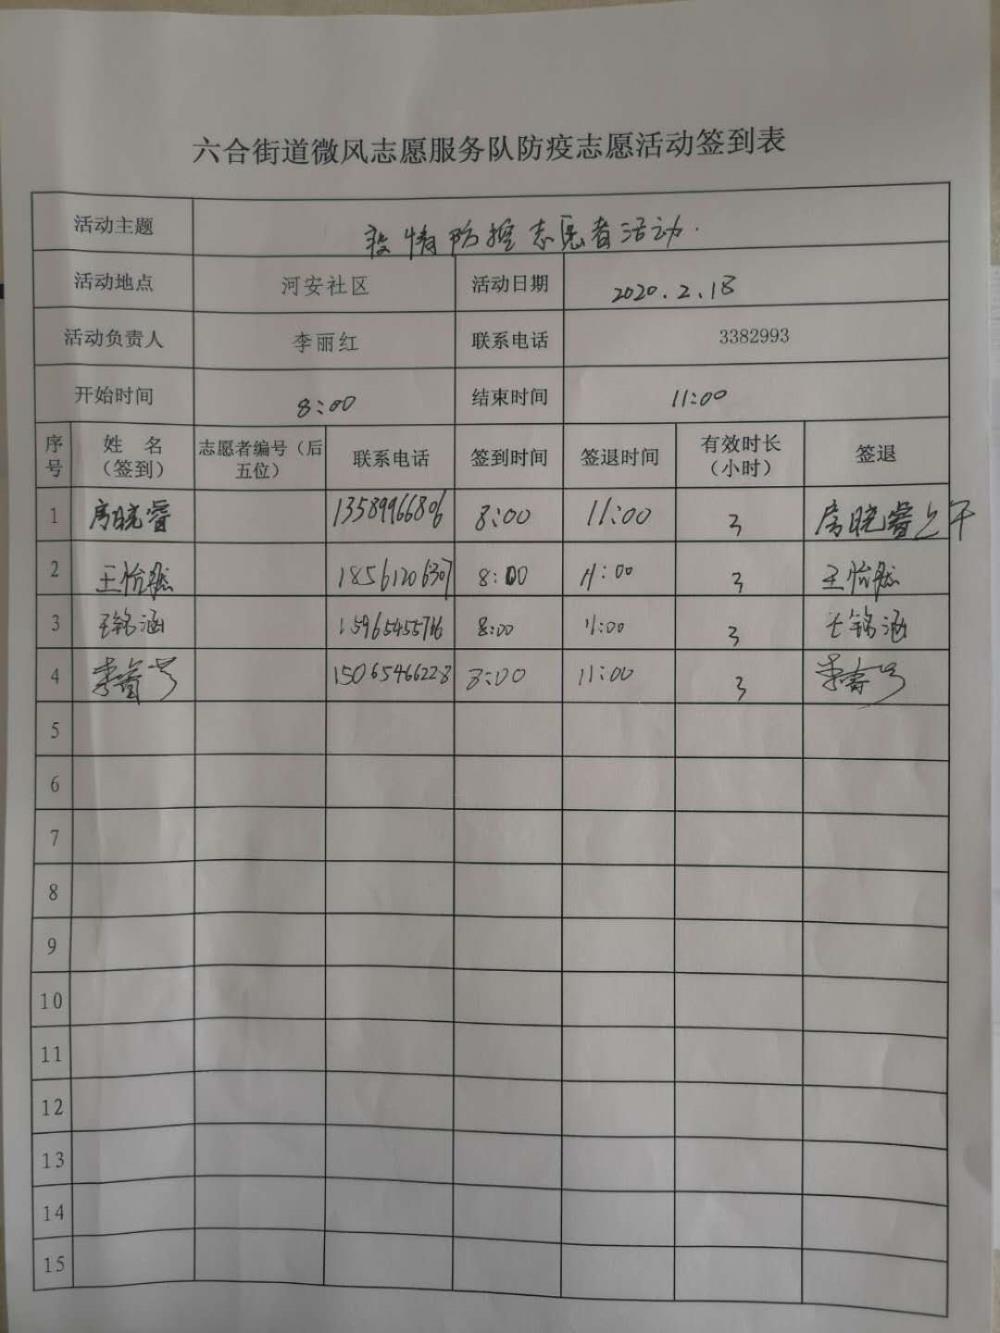 六合街道微风志愿服务队防疫志愿活动签到表
活动主题 疫情防控志愿者活动.
活动地点 河安社区 活动日期 2020.2.18
活动负责人 李丽红 联系电话 3382993
开始时间 8:00 结束时间 11:00
序号 姓 名（签到） 志愿者编号（后五位） 联系电话 签到时间 签退时间 有效时长（小时） 签退
1 房晓睿 13589966806 8:00 11:00 3 房晓睿上午
2 王怡 18561206307 8:00 11:00 3 王怡
3 王铭涵 15965455716 8:00 11:00 3 王铭涵
4 李 15065466228 8:00 11:00 3 李
5
6
7
8
9
10
11
12
13
14
15